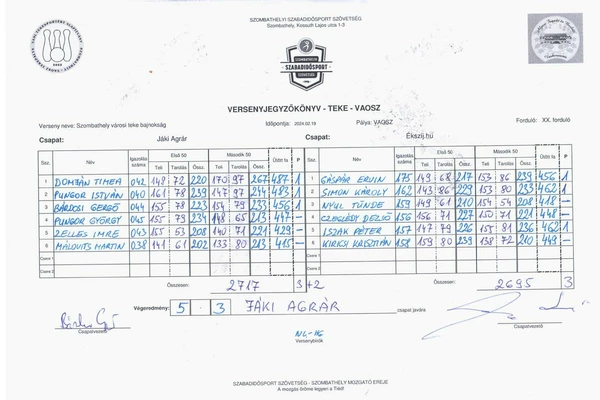 SZOMBATHELYI SZABADIDŐSPORT SZÖVETSÉG
Szombathely, Kossuth Lajos utca 1-3
SZOMBATHELYI
SZABADIDŐSPORT
SZÖVETSÉG
VERSENYJEGYZŐKÖNYV - TEKE - VAOSZ
Verseny neve: Szombathely városi teke bajnokság Időpontja: 2024.02.19 Pálya: VAOSZ Forduló: XX. forduló
Csapat: Jáki Agrár Csapat: Ékszij.hu
Ssz. Név Igazolás száma Első 50 Második 50 Ütött fa P Ssz. Név Igazolás száma Első 50 Második 50 Ütött fa P
Teli Tarolás Össz. Teli Tarolás Össz. Teli Tarolás Össz. Teli Tarolás Össz.
1 DOMJÁN TÍMEA 042 148 72 220 170 97 267 487 1 1 GÁSPÁR ERVIN 175 149 68 217 153 86 239 456 1
2 PUNGOR ISTVÁN 040 161 78 239 147 97 244 483 1 2 SIMON KÁROLY 162 143 86 229 153 80 233 462 1
3 BÁRDOSI GERGŐ 044 155 78 223 154 79 233 456 1 3 NYUL TÜNDE 159 149 61 210 154 54 208 418 -
4 PUNGOR GYÖRGY 045 155 79 234 148 65 213 447 - 4 CZEGLÉDY DEZSŐ 156 156 71 227 150 71 221 448 -
5 ZELLES IMRE 043 155 53 208 140 71 221 429 - 5 ISZAK PÉTER 157 147 79 226 155 81 236 462 1
6 MÁLOVITS MARTIN 038 141 61 202 133 80 213 415 - 6 KIRICSI KRISZTIÁN 158 159 80 239 138 72 210 449 -
Csere 1 Csere 1
Csere 2 Csere 2
Összesen: 2717 3+2 Összesen: 2695 3
Végeredmény: 5 - 3 JÁKI AGRÁR csapat javára
Csapatvezető Csapatvezető
Versenybírók
SZABADIDŐSPORT SZÖVETSÉG - SZOMBATHELY MOZGATÓ EREJE
A mozgás öröme legyen a Tiéd!